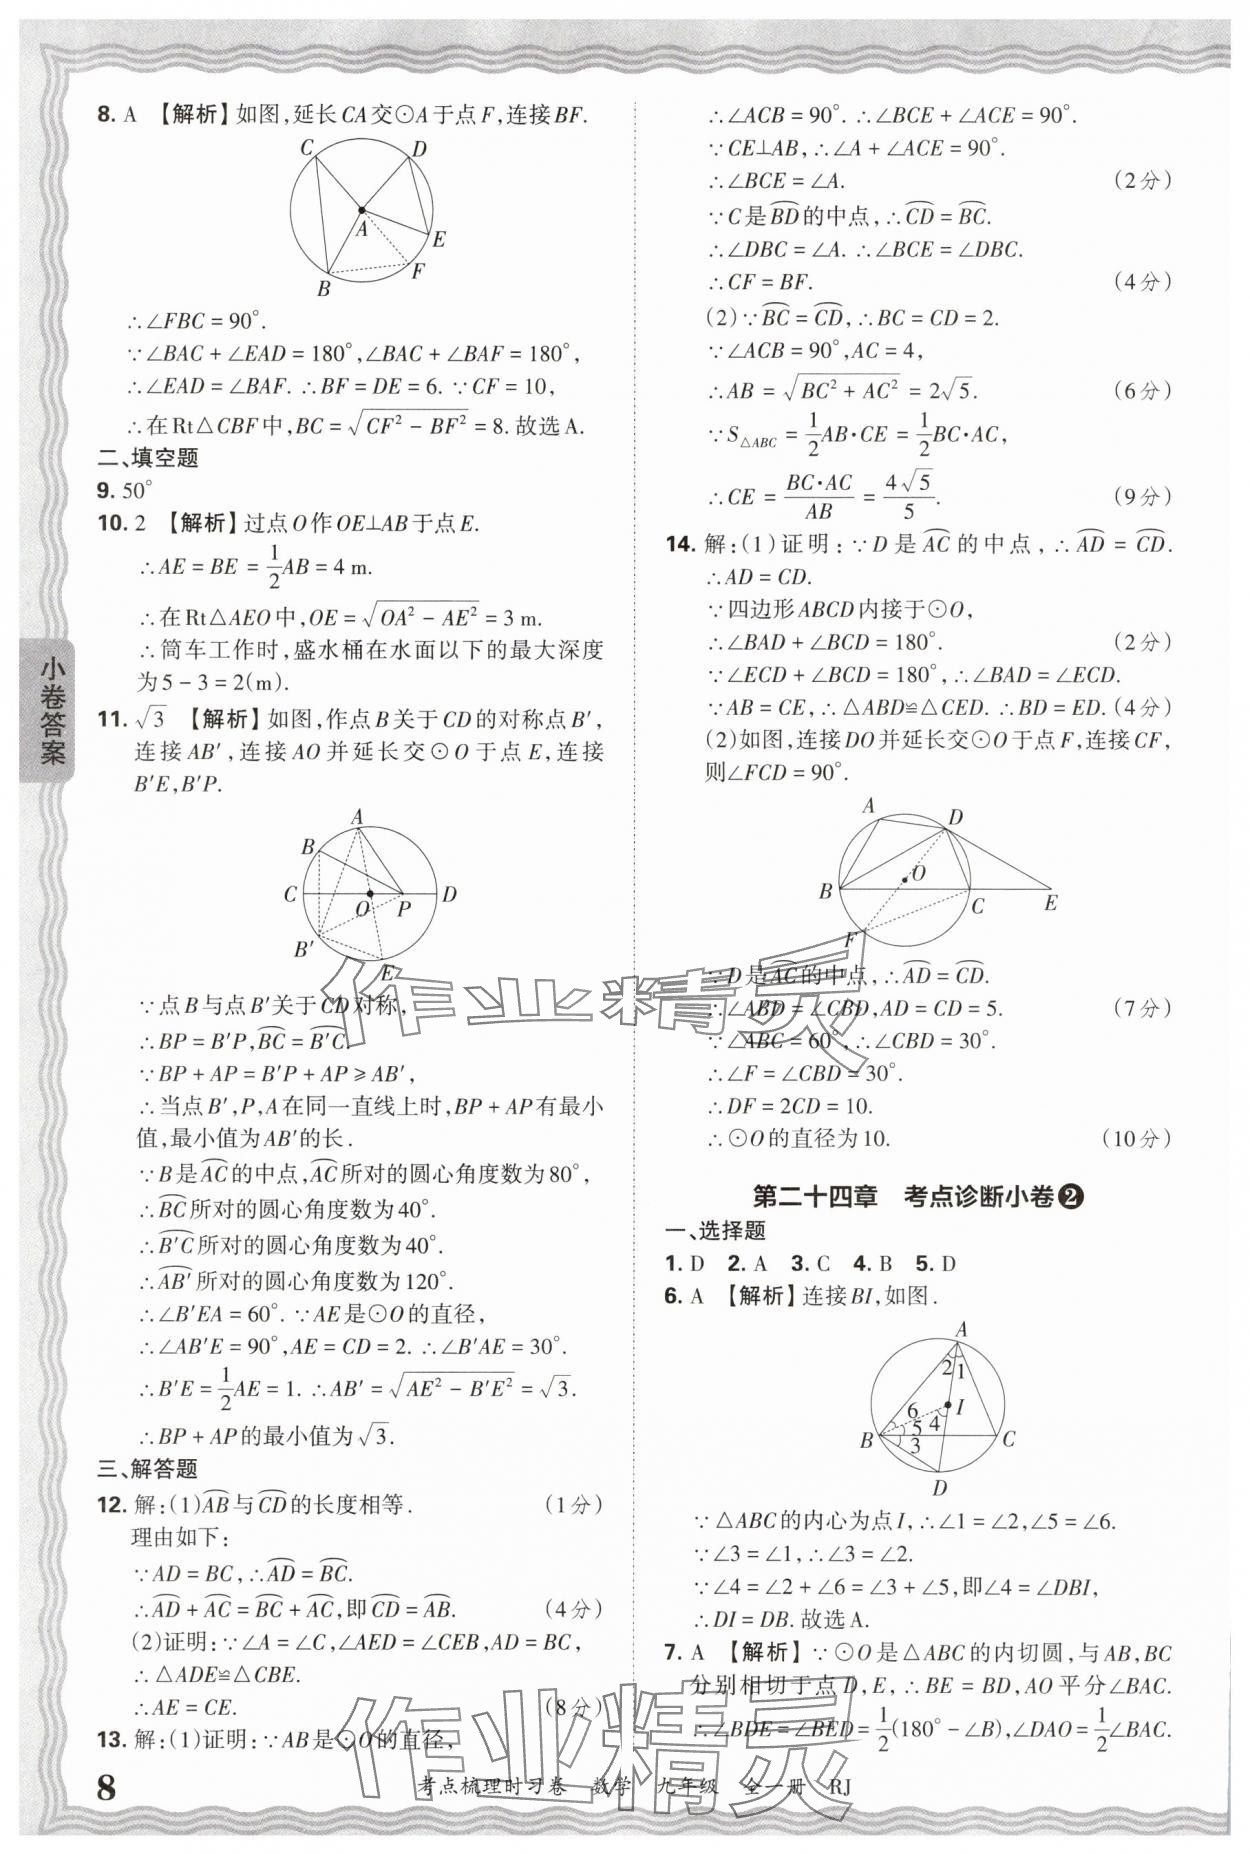 8. A 【解析】如图,延长CA交⊙A于点F,连接BF.
C D
A
E
F
B
∴∠FBC=90°.
∵∠BAC+∠EAD=180°,∠BAC+∠BAF=180°,
∴∠EAD=∠BAF. ∴BF=DE=6. ∵CF=10,
∴在Rt△CBF中,BC=√(CF²-BF²)=8.故选A.
二、填空题
9. 50°
10. 2 【解析】过点O作OE⊥AB于点E.
∴AE=BE=1/2AB=4 m.
∴在Rt△AEO中,OE=√(OA²-AE²)=3 m.
∴筒车工作时,盛水桶在水面以下的最大深度
为5-3=2(m).
11. √3 【解析】如图,作点B关于CD的对称点B′,
连接AB′,连接AO并延长交⊙O于点E,连接
B′E,B′P.
A
B
C O P D
B′
E
∵点B与点B′关于CD对称,
∴BP=B′P,⌒BC=⌒B′C.
∵BP+AP=B′P+AP≥AB′,
∴当点B′,P,A在同一直线上时,BP+AP有最小
值,最小值为AB′的长.
∵B是⌒AC的中点,⌒AC所对的圆心角度数为80°,
∴⌒BC所对的圆心角度数为40°.
∴⌒B′C所对的圆心角度数为40°.
∴⌒AB′所对的圆心角度数为120°.
∴∠B′EA=60°. ∵AE是⊙O的直径,
∴∠AB′E=90°,AE=CD=2. ∴∠B′AE=30°.
∴B′E=1/2AE=1. ∴AB′=√(AE²-B′E²)=√3.
∴BP+AP的最小值为√3.
三、解答题
12. 解:(1)⌒AB与⌒CD的长度相等. (1分)
理由如下:
∵AD=BC,∴⌒AD=⌒BC.
∴⌒AD+⌒AC=⌒BC+⌒AC,即⌒CD=⌒AB. (4分)
(2)证明:∵∠A=∠C,∠AED=∠CEB,AD=BC,
∴△ADE≌△CBE.
∴AE=CE. (8分)
13. 解:(1)证明:∵AB是⊙O的直径,
∴∠ACB=90°. ∴∠BCE+∠ACE=90°.
∵CE⊥AB,∴∠A+∠ACE=90°.
∴∠BCE=∠A. (2分)
∵C是⌒BD的中点,∴⌒CD=⌒BC.
∴∠DBC=∠A. ∴∠BCE=∠DBC.
∴CF=BF. (4分)
(2)∵⌒BC=⌒CD,∴BC=CD=2.
∵∠ACB=90°,AC=4,
∴AB=√(BC²+AC²)=2√5. (6分)
∵S△ABC=1/2AB·CE=1/2BC·AC,
∴CE=BC·AC/AB=4√5/5. (9分)
14. 解:(1)证明:∵D是⌒AC的中点,∴⌒AD=⌒CD.
∴AD=CD.
∵四边形ABCD内接于⊙O,
∴∠BAD+∠BCD=180°. (2分)
∵∠ECD+∠BCD=180°,∴∠BAD=∠ECD.
∵AB=CE,∴△ABD≌△CED. ∴BD=ED. (4分)
(2)如图,连接DO并延长交⊙O于点F,连接CF,
则∠FCD=90°.
A D
O
B C E
F
∵D是⌒AC的中点,∴⌒AD=⌒CD.
∴∠ABD=∠CBD,AD=CD=5. (7分)
∵∠ABC=60°,∴∠CBD=30°.
∴∠F=∠CBD=30°.
∴DF=2CD=10.
∴⊙O的直径为10. (10分)
第二十四章 考点诊断小卷❷
一、选择题
1. D 2. A 3. C 4. B 5. D
6. A 【解析】连接BI,如图.
A
2 1
6 I
5 4
B 3 C
D
∵△ABC的内心为点I,∴∠1=∠2,∠5=∠6.
∵∠3=∠1,∴∠3=∠2.
∵∠4=∠2+∠6=∠3+∠5,即∠4=∠DBI,
∴DI=DB.故选A.
7. A 【解析】∵⊙O是△ABC的内切圆,与AB,BC
分别相切于点D,E,∴BE=BD,AO平分∠BAC.
∴∠BDE=∠BED=1/2(180°-∠B),∠DAO=1/2∠BAC.
小卷答案
8
考点梳理时习卷 数学 九年级 全一册 RJ
作业精灵
作业精灵